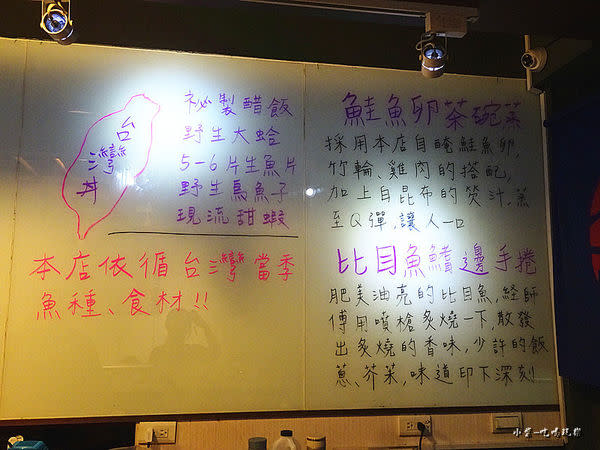 台灣丼
祕製醋飯
野生大蛤
5-6片生魚片
野生烏魚子
現流甜蝦
本店依循台灣當季
魚種、食材!!
鮭魚卵茶碗蒸
採用本店自醃鮭魚卵,
竹輪、雞肉的搭配,
加上自昆布的熒汁,蒸
至Q彈,讓人一口
比目魚鰭邊手捲
肥美油亮的比目魚,經師
傅用噴槍炙燒一下,散發
出炙燒的香味,少許的飯
蔥、芥菜,味道印下深刻